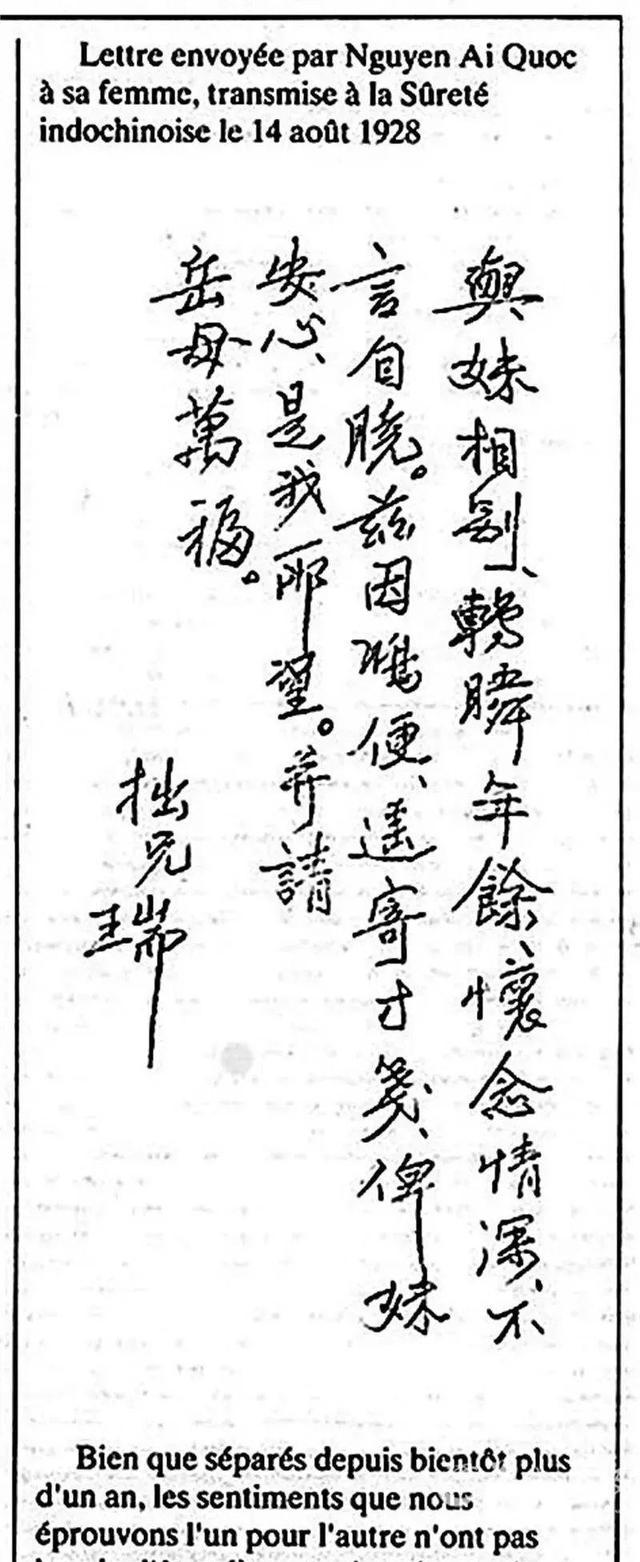 Lettre envoyée par Nguyen Ai Quoc
à sa femme, transmise à la Sûreté
indochinoise le 14 août 1928
與妹相別、轉瞬年餘、懷念情深、不
言自曉。茲因鴻便、遙寄寸箋、俾妹
安心、是我所望。并請
岳母萬福。
拙兄瑞
Bien que séparés depuis bientôt plus
d'un an, les sentiments que nous
éprouvons l'un pour l'autre n'ont pas